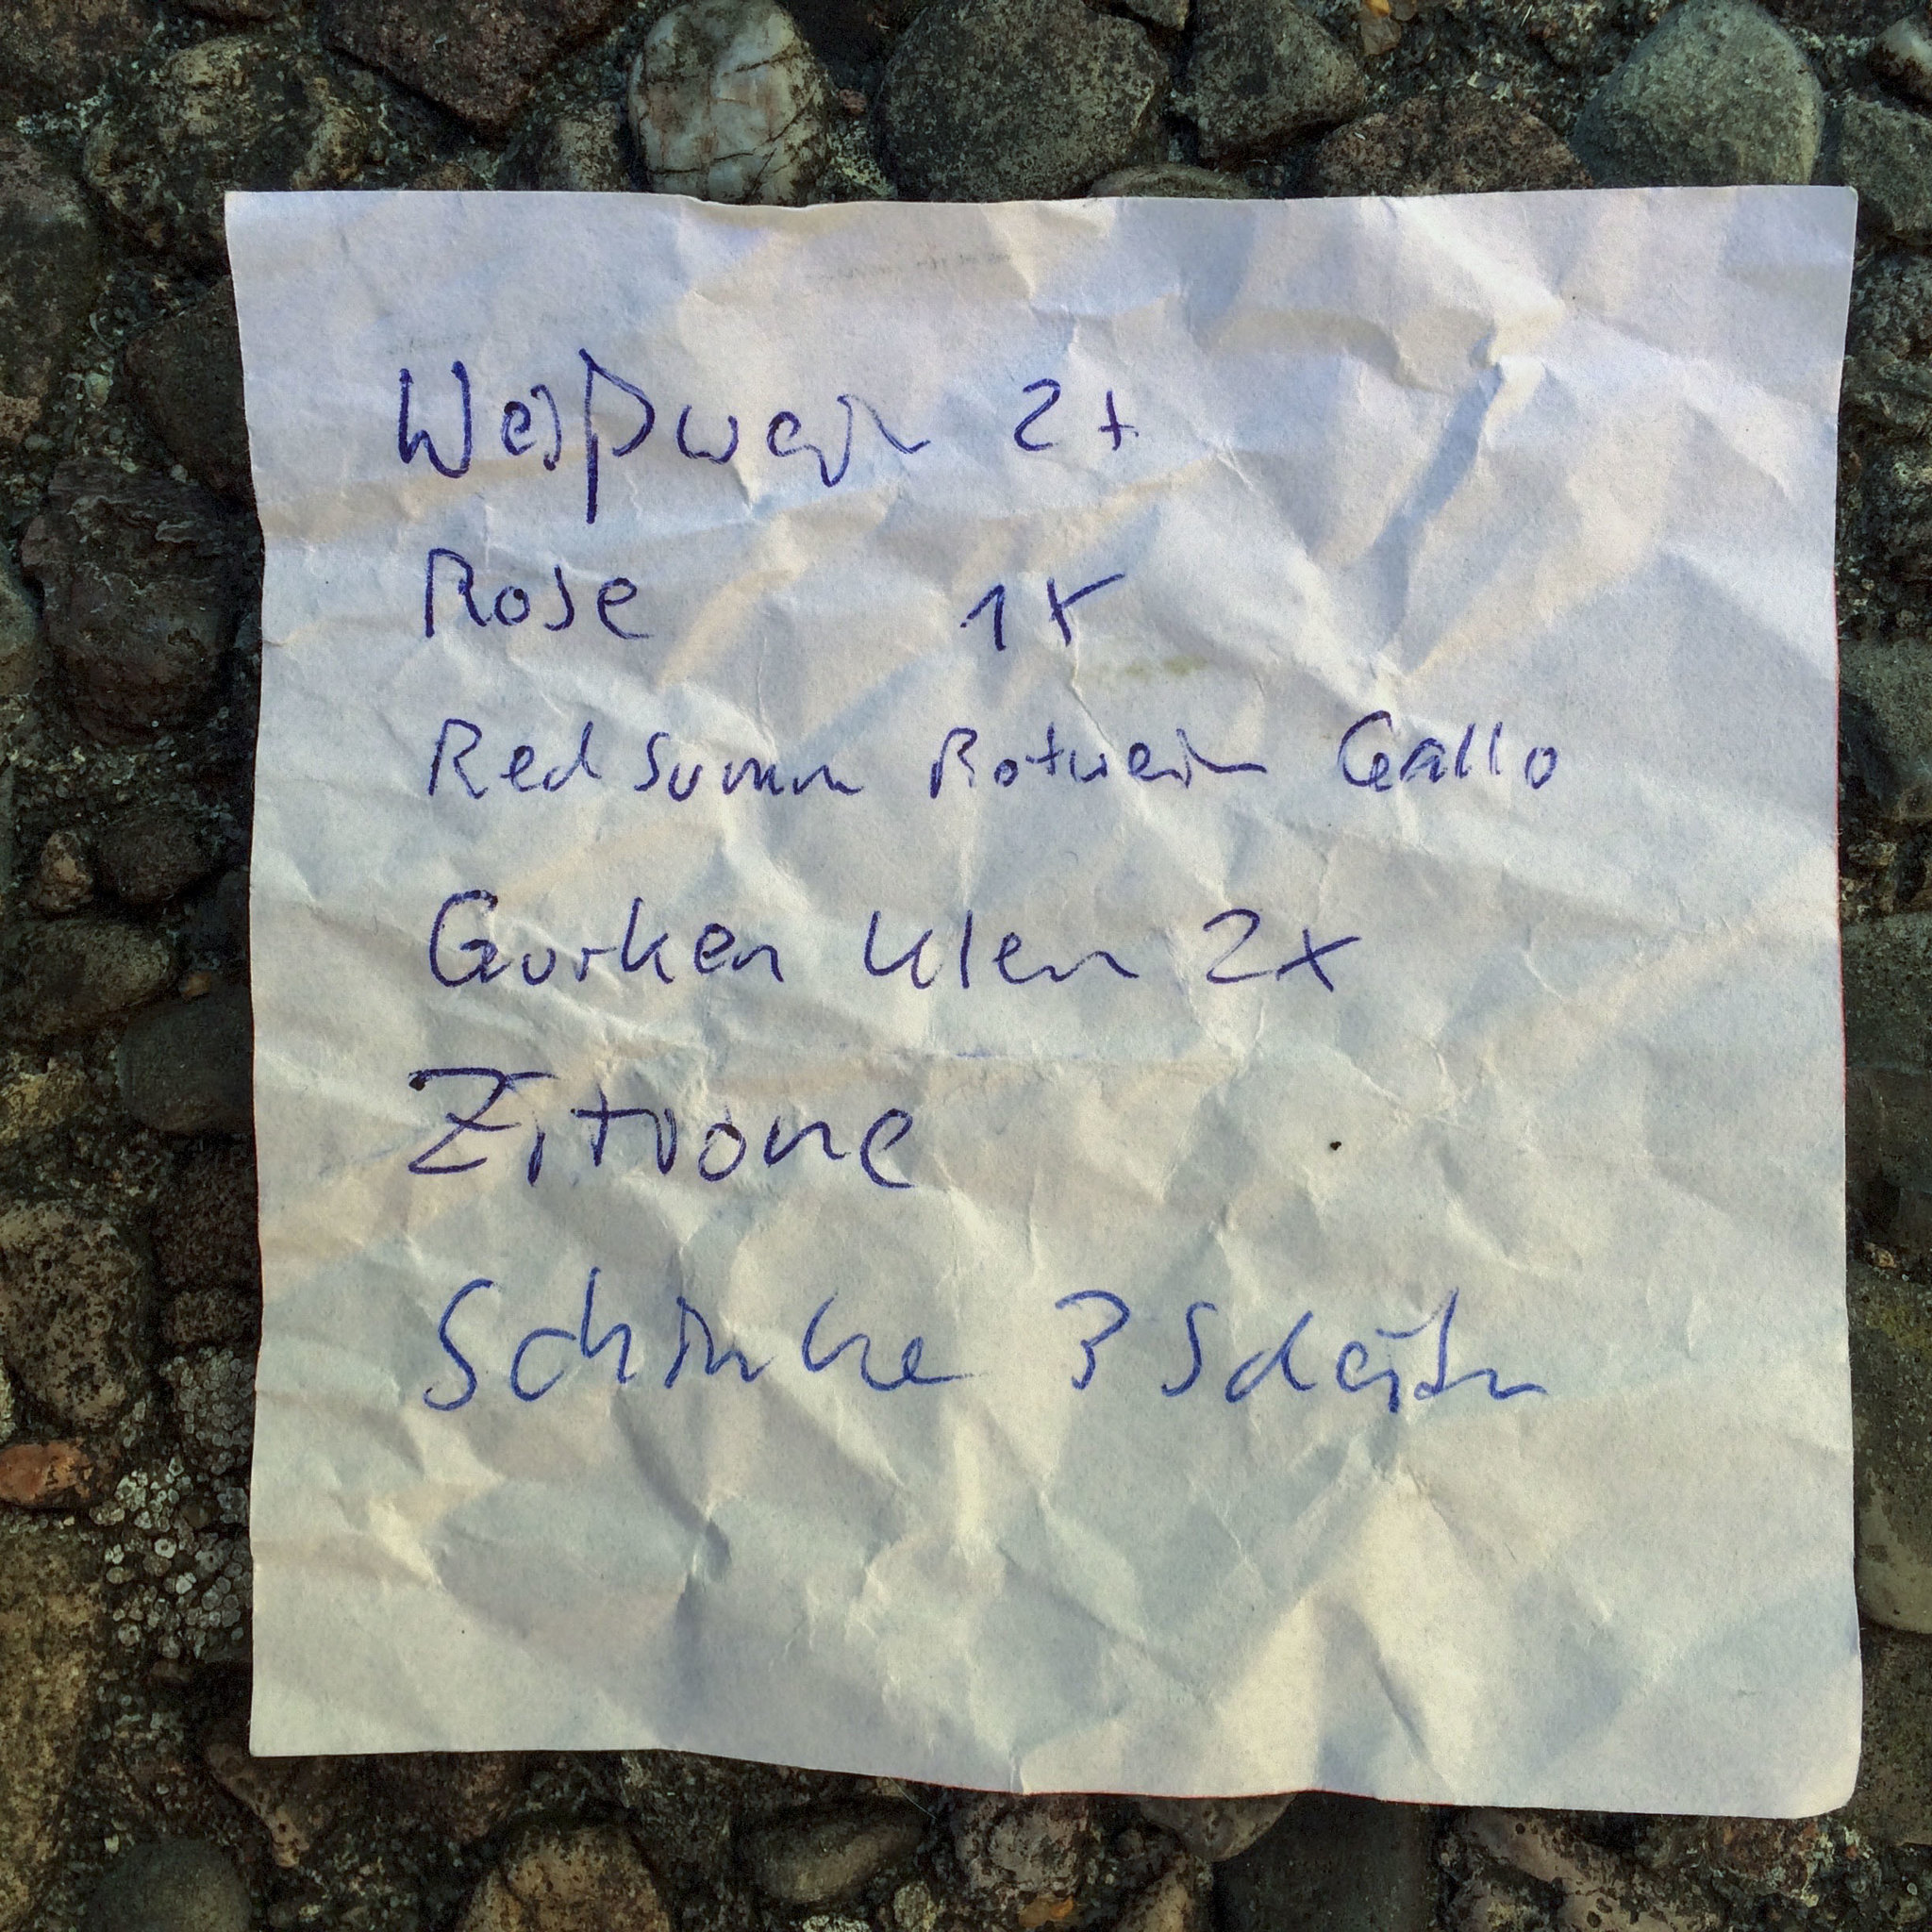 Weißwein 2x
Rose 1x
Red Summ Rotwein Gallo
Gurken klen 2x
Zitrone
Schinke 3 Scheibn